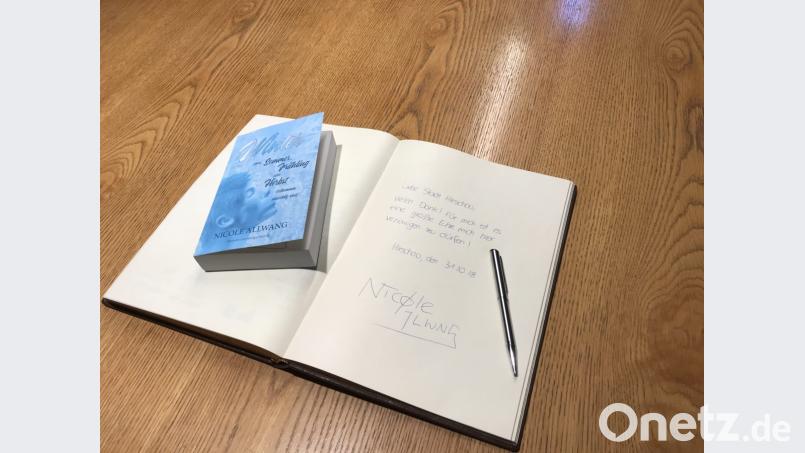 Winter
Sommer,
Frühling
und
Herbst
NICOLE ALLWANG
Liebe Stadt Hirschau,
vielen Dank! Für mich ist es
eine große Ehre mich hier
verewigen zu dürfen!
Hirschau, den 31.10.18
Nicole
Allwang
Onetz.de